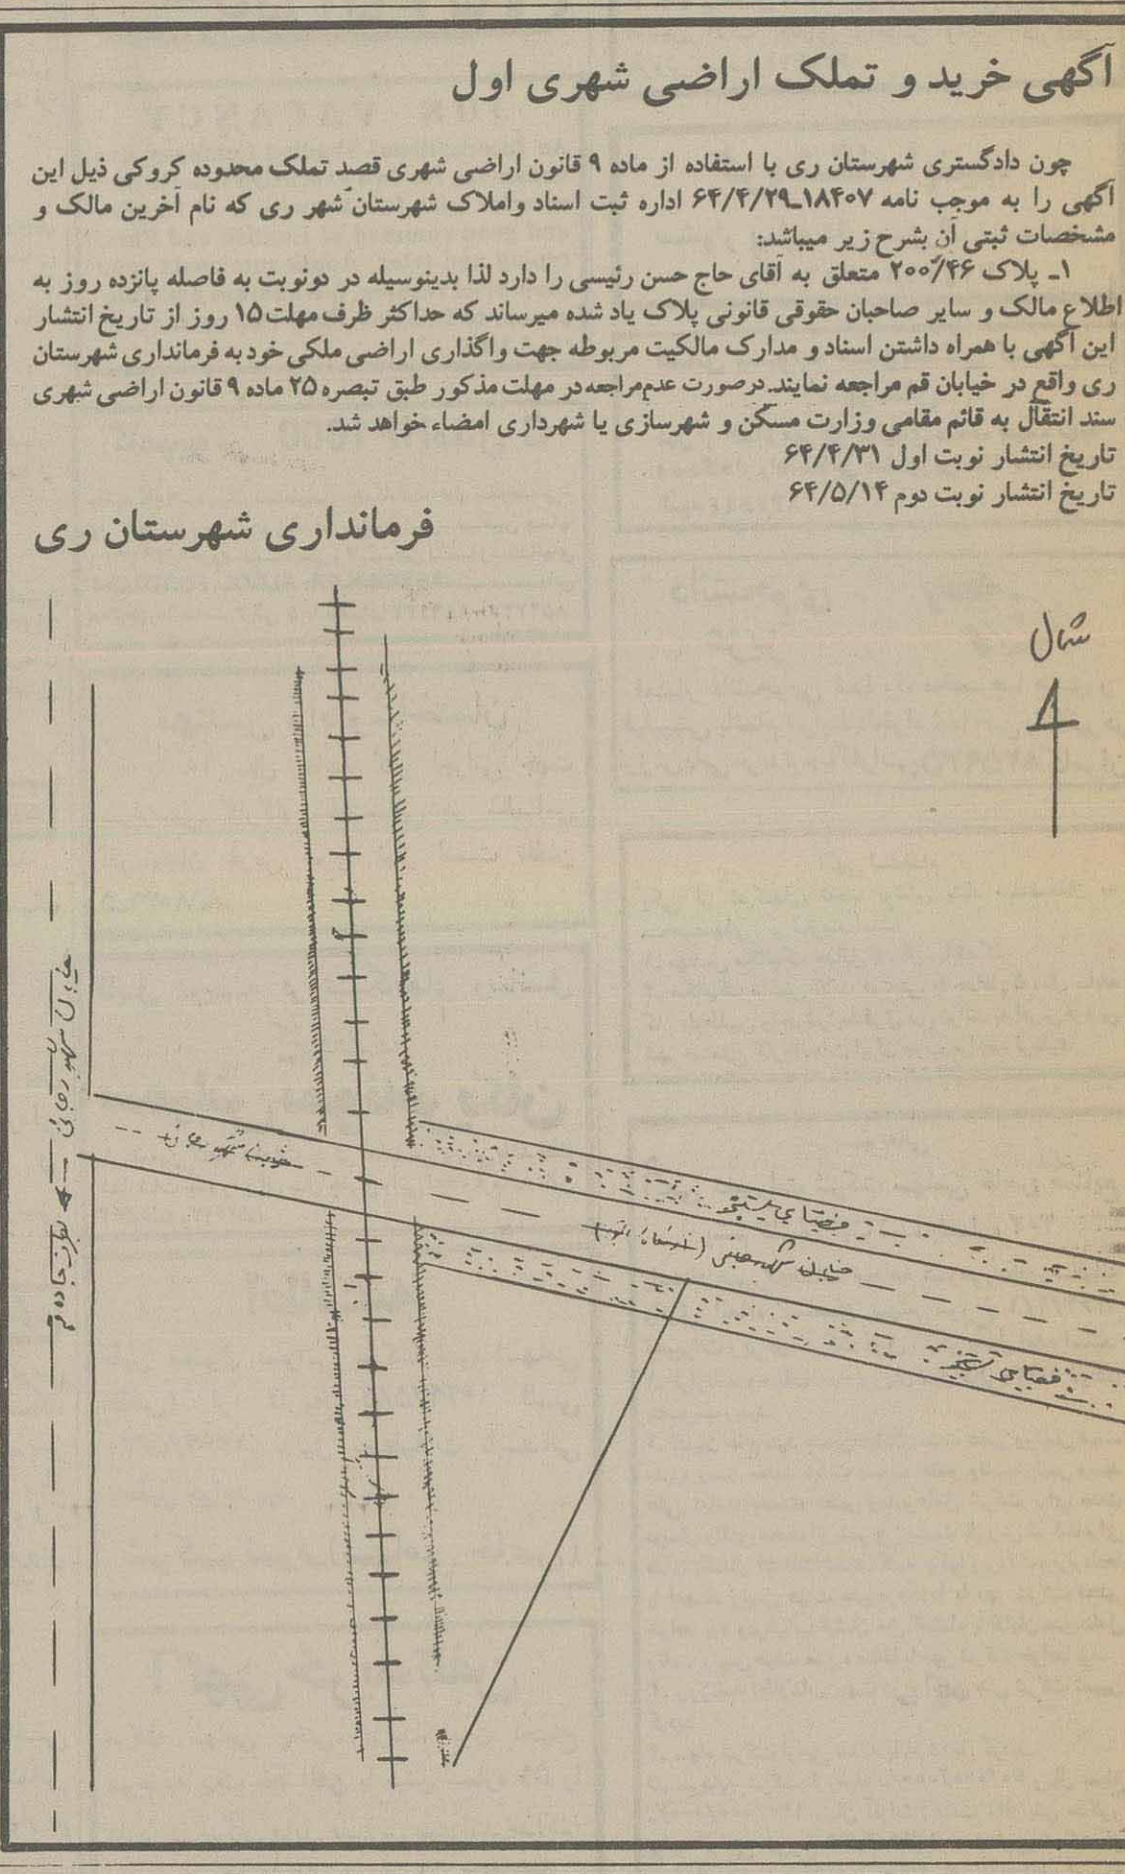 آگهی خرید و تملک اراضی شهری اول
چون دادگستری شهرستان ری با استفاده از ماده ۹ قانون اراضی شهری قصد تملک محدوده کروکی ذیل این
آگهی را به موجب نامه ۱۸۴۰۷ـ۶۴/۴/۲۹ اداره ثبت اسناد واملاک شهرستان شهر ری که نام آخرین مالک و
مشخصات ثبتی آن بشرح زیر میباشد:
۱ـ پلاک ۲۰۰/۴۶ متعلق به آقای حاج حسن رئیسی را دارد لذا بدینوسیله در دونوبت به فاصله پانزده روز به
اطلاع مالک و سایر صاحبان حقوقی قانونی پلاک یاد شده میرساند که حداکثر ظرف مهلت ۱۵ روز از تاریخ انتشار
این آگهی با همراه داشتن اسناد و مدارک مالکیت مربوطه جهت واگذاری اراضی ملکی خود به فرمانداری شهرستان
ری واقع در خیابان قم مراجعه نمایند. درصورت عدم مراجعه در مهلت مذکور طبق تبصره ۲۵ ماده ۹ قانون اراضی شهری
سند انتقال به قائم مقامی وزارت مسکن و شهرسازی یا شهرداری امضاء خواهد شد.
تاریخ انتشار نوبت اول ۶۴/۴/۳۱
تاریخ انتشار نوبت دوم ۶۴/۵/۱۴
فرمانداری شهرستان ری
شمال
خیابان شهید رجائی
بطرف جاده قم
فضای سبز
خیابان
فضای سبز